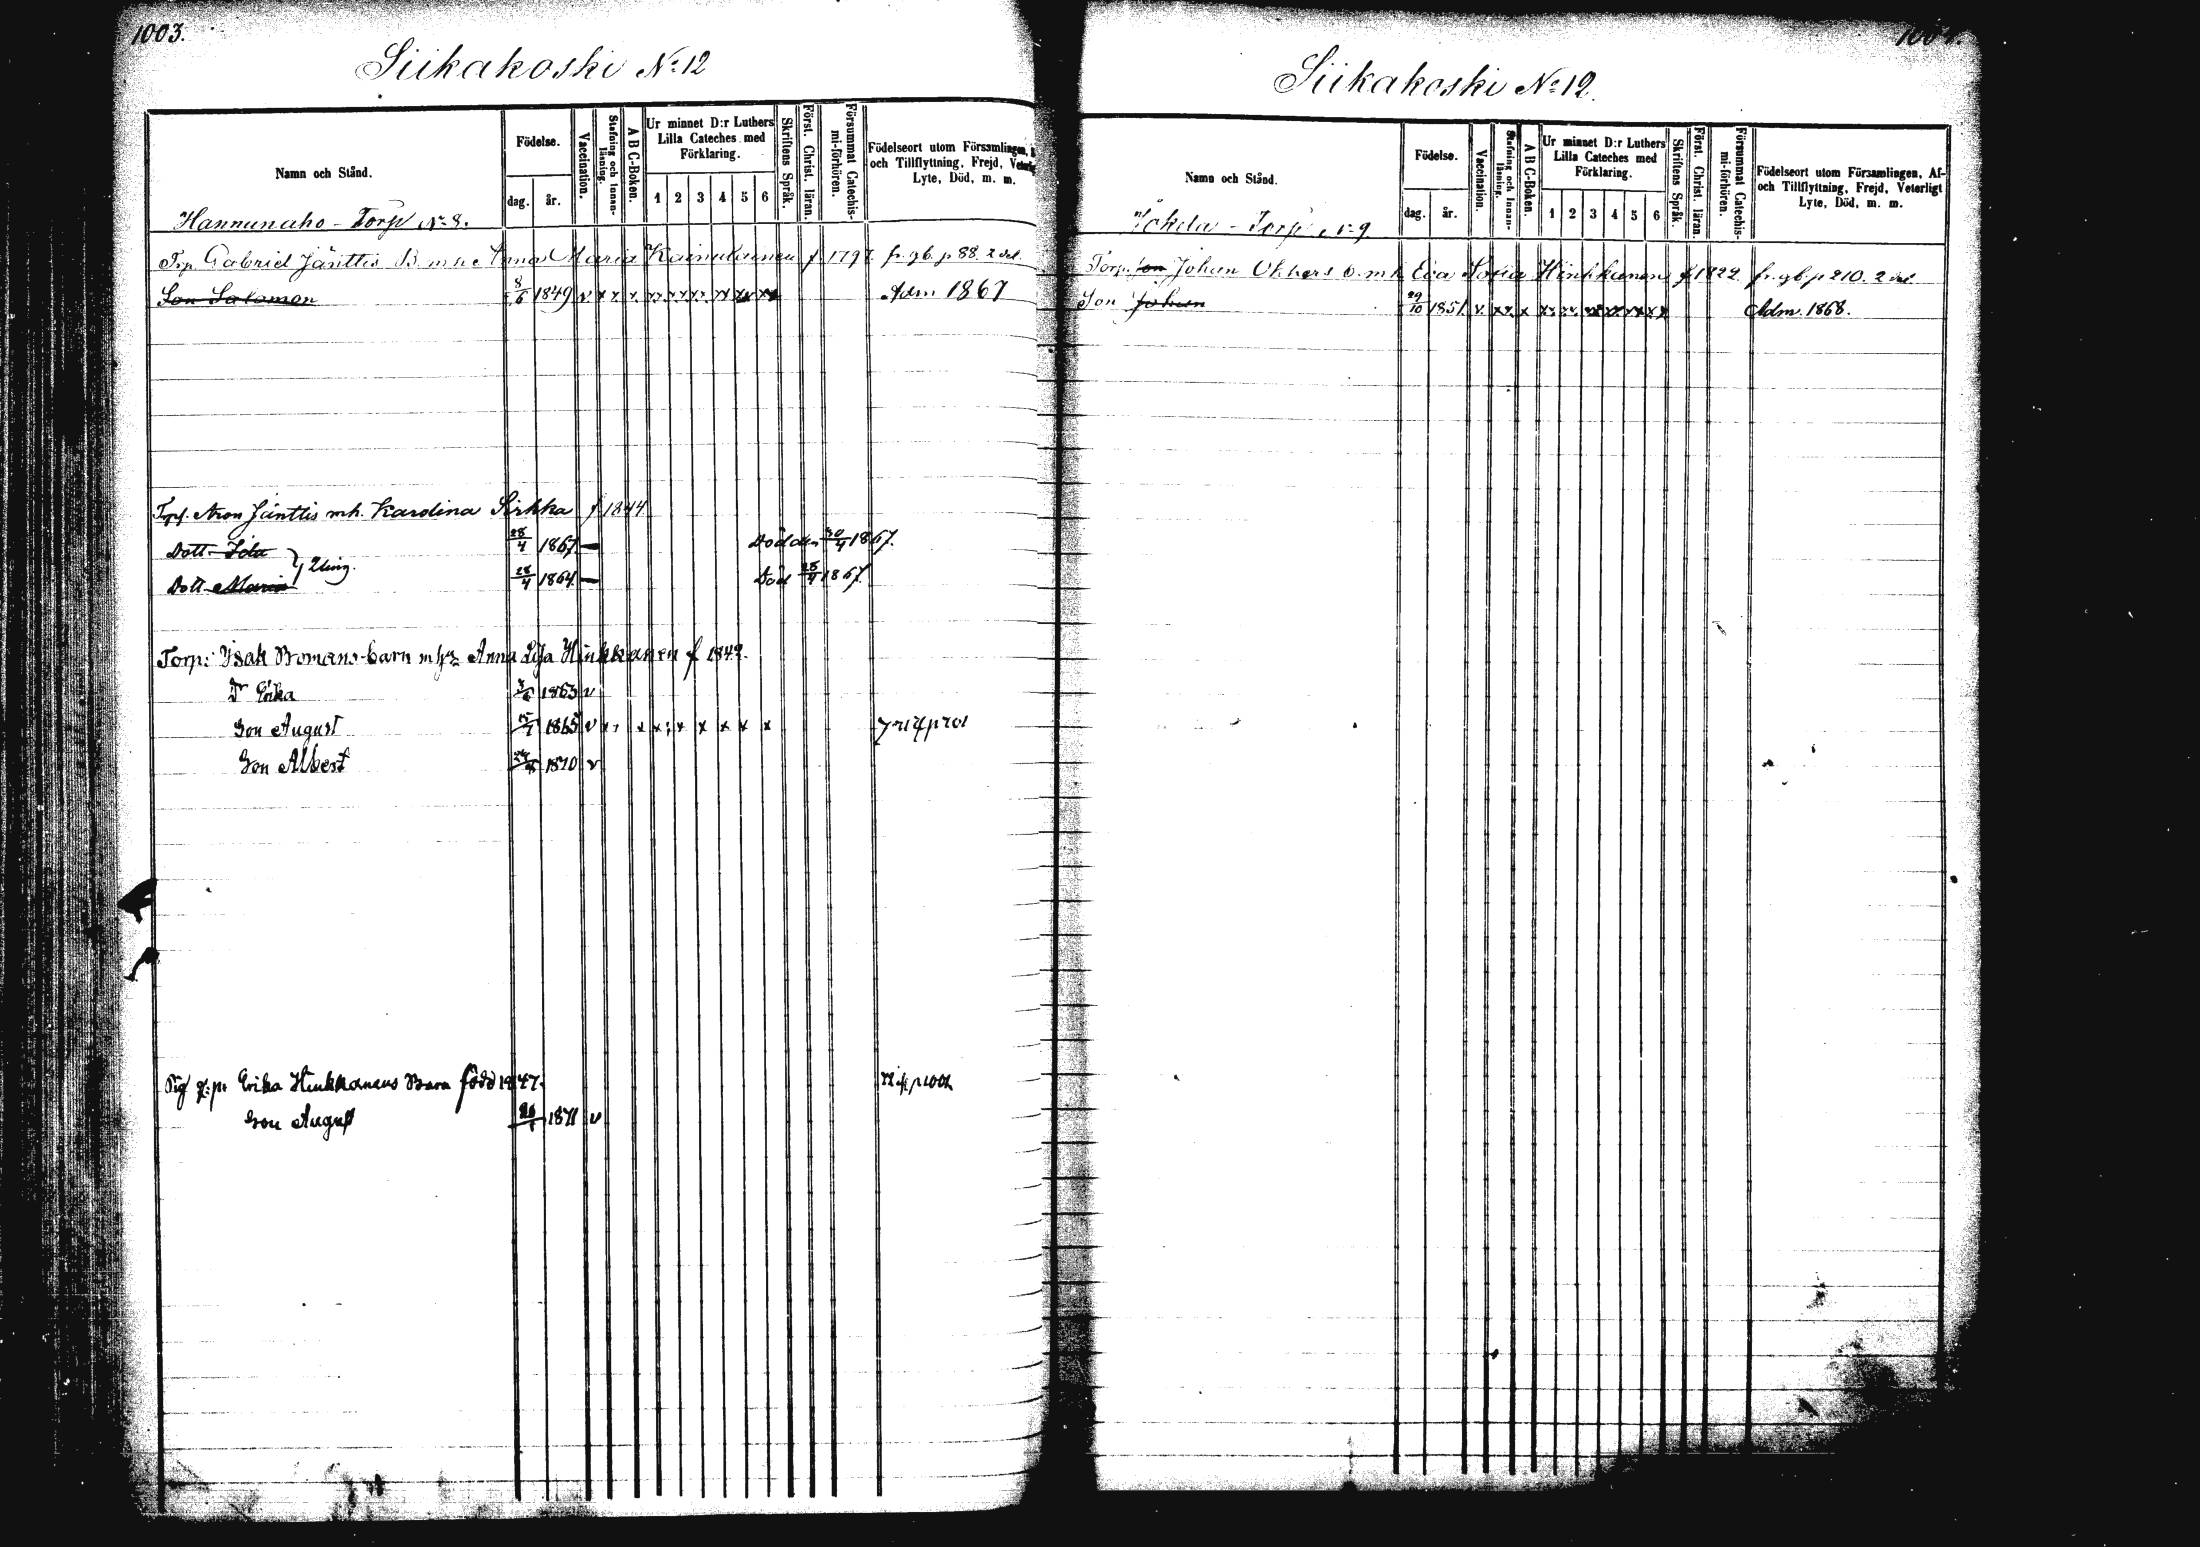 1003.
Siikakoski No: 12
Namn och Stånd.
Födelse.
dag.
år.
Vaccination.
Stafning och Innan-läsning.
A B C-Boken.
Ur minnet D:r Luthers Lilla Cateches med Förklaring.
1 2 3 4 5 6
Skriftens Språk.
Först. Christ. läran.
Försummat Catechis-mi-förhören.
Födelseort utom Församlingen,
och Tillflyttning, Frejd,
Lyte, Död, m. m.
Hannunaho - Torp No 8.
Torp. Gabriel Jänttis B. m. h. Anna Maria Kainulainen f 1797. fr. gb. p 88. 2 del.
Son Salomon 8/6 1849 v x x x xx xx xx xx xx xx Adm 1867
Aron Jänttis mh. Karolina Sirkka f 1844
Dott. Ida 28/4 1867 — Död den 30/4 1867.
Dott. Maria 28/4 1864 — Död 28/4 1867.
Torp: Isak Bomans barn m h Anna Lisa Hinkkanen f 1842.
D Erika 1863 v
Son August 1865 v x x x x x x x
Son Albert 1870 v
Erika Hinkkanens Barn född 1847.
Son August 1871 v
Siikakoski No: 12.
Namn och Stånd.
Födelse.
dag.
år.
Vaccination.
Stafning och Innan-läsning.
A B C-Boken.
Ur minnet D:r Luthers Lilla Cateches med Förklaring.
1 2 3 4 5 6
Skriftens Språk.
Först. Christ. läran.
Försummat Catechis-mi-förhören.
Födelseort utom Församlingen, Af-
och Tillflyttning, Frejd, Veterligt
Lyte, Död, m. m.
Torp No 9
Torp. son Johan b. m h Eva Sofia Hinkkanen f 1822 fr. gb. p 210. 2 del
Son Johan 29/10 1851 v. xx x xx xx xx xx xx xx Adm. 1868.